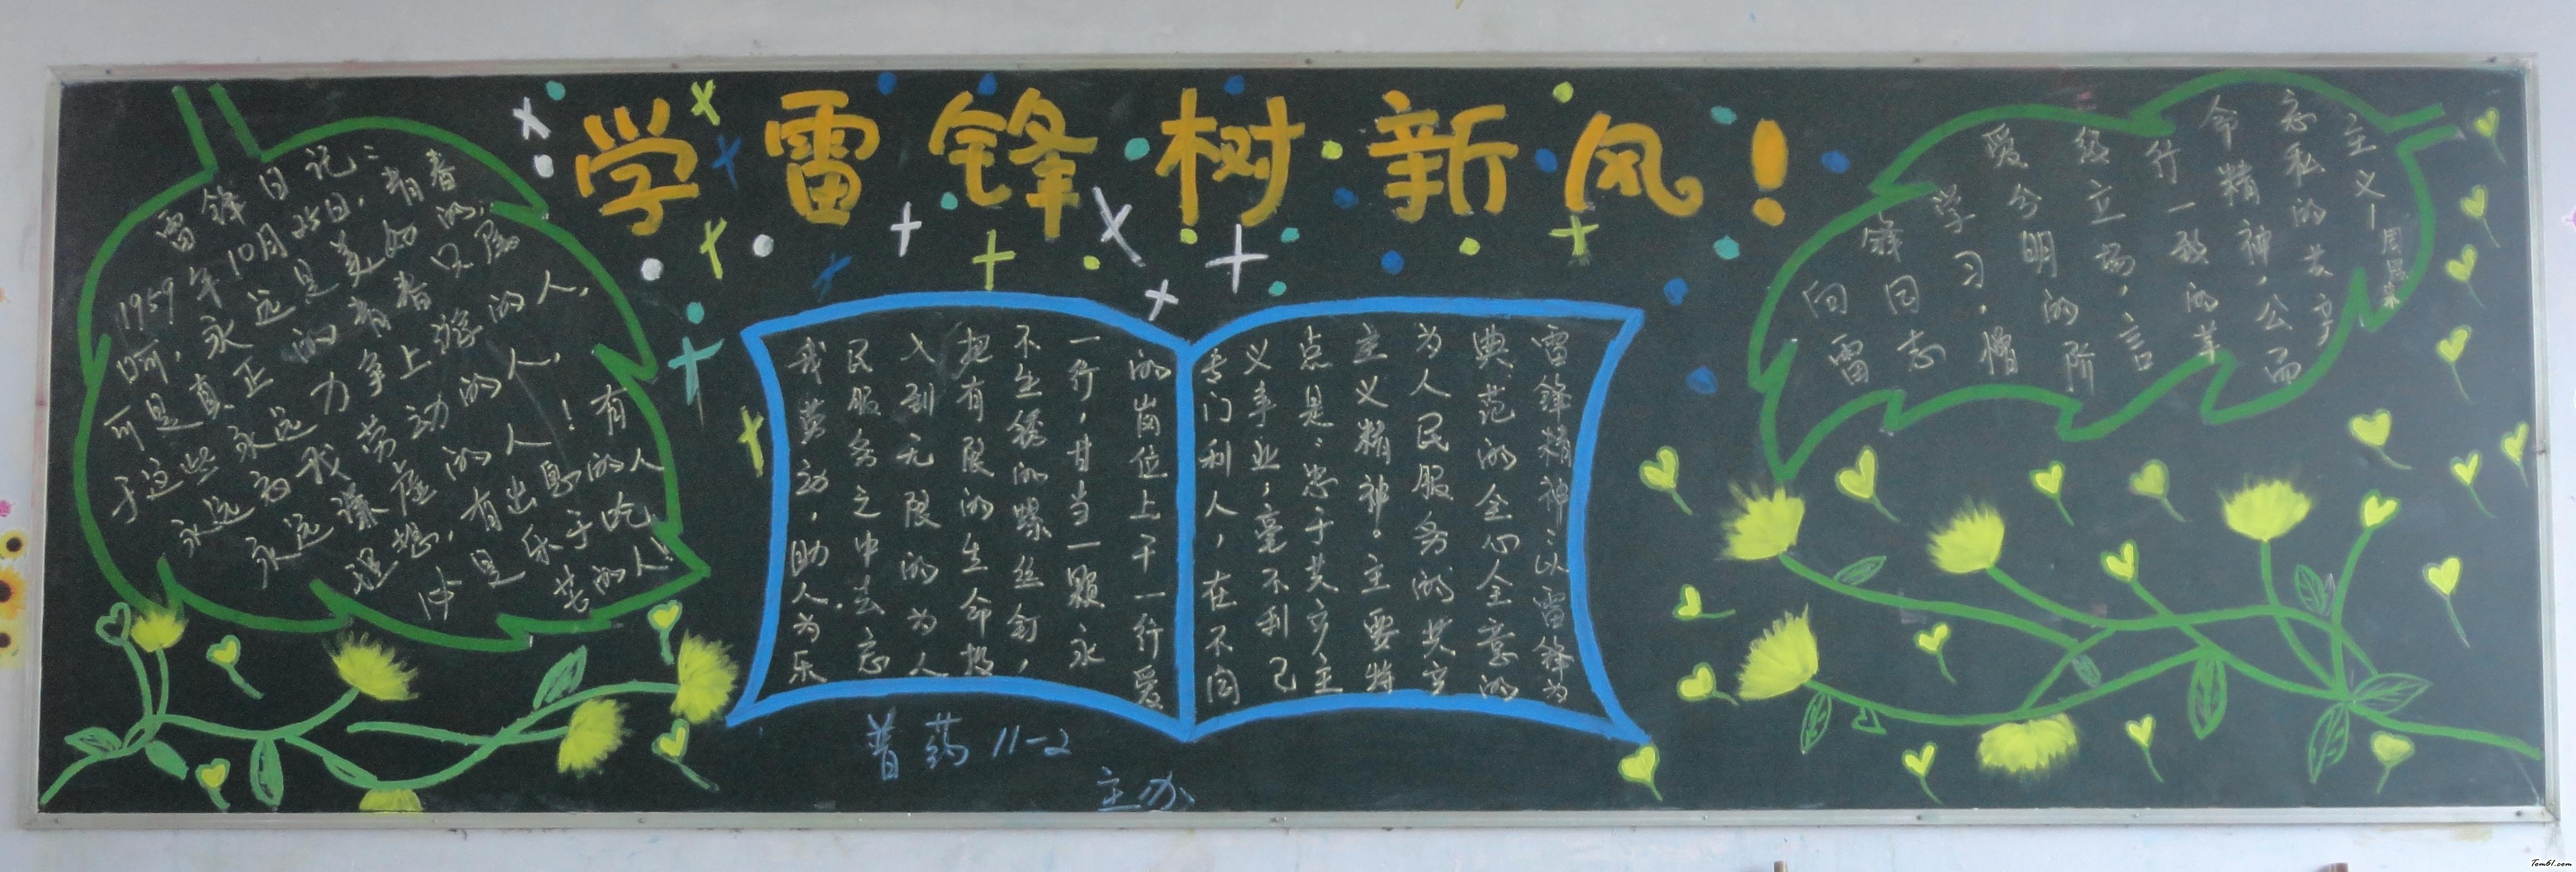 学雷锋树新风！
雷锋日记：
1959年10月25日，青春
啊，永远是美好的，
可是真正的青春只属
于这些永远力争上游的人，
永远忘我劳动的人，
永远谦虚的人！有
理想，有出息的人
必是乐于吃
苦的人！
雷锋精神：以雷锋为
典范的全心全意的
为人民服务的共产
主义精神。主要特
点是：忠于共产主
义事业；毫不利己
专门利人，在不同
的岗位上干一行爱
一行，甘当一颗永
不生锈的螺丝钉，
把有限的生命投
入到无限的为人
民服务之中去忘
我劳动，助人为乐
向雷
锋同志
学习，憎
爱分明的阶
级立场，言
行一致的革
命精神，公而
忘私的共产
主义—周恩来
普药11-2
主办
Tom61.com